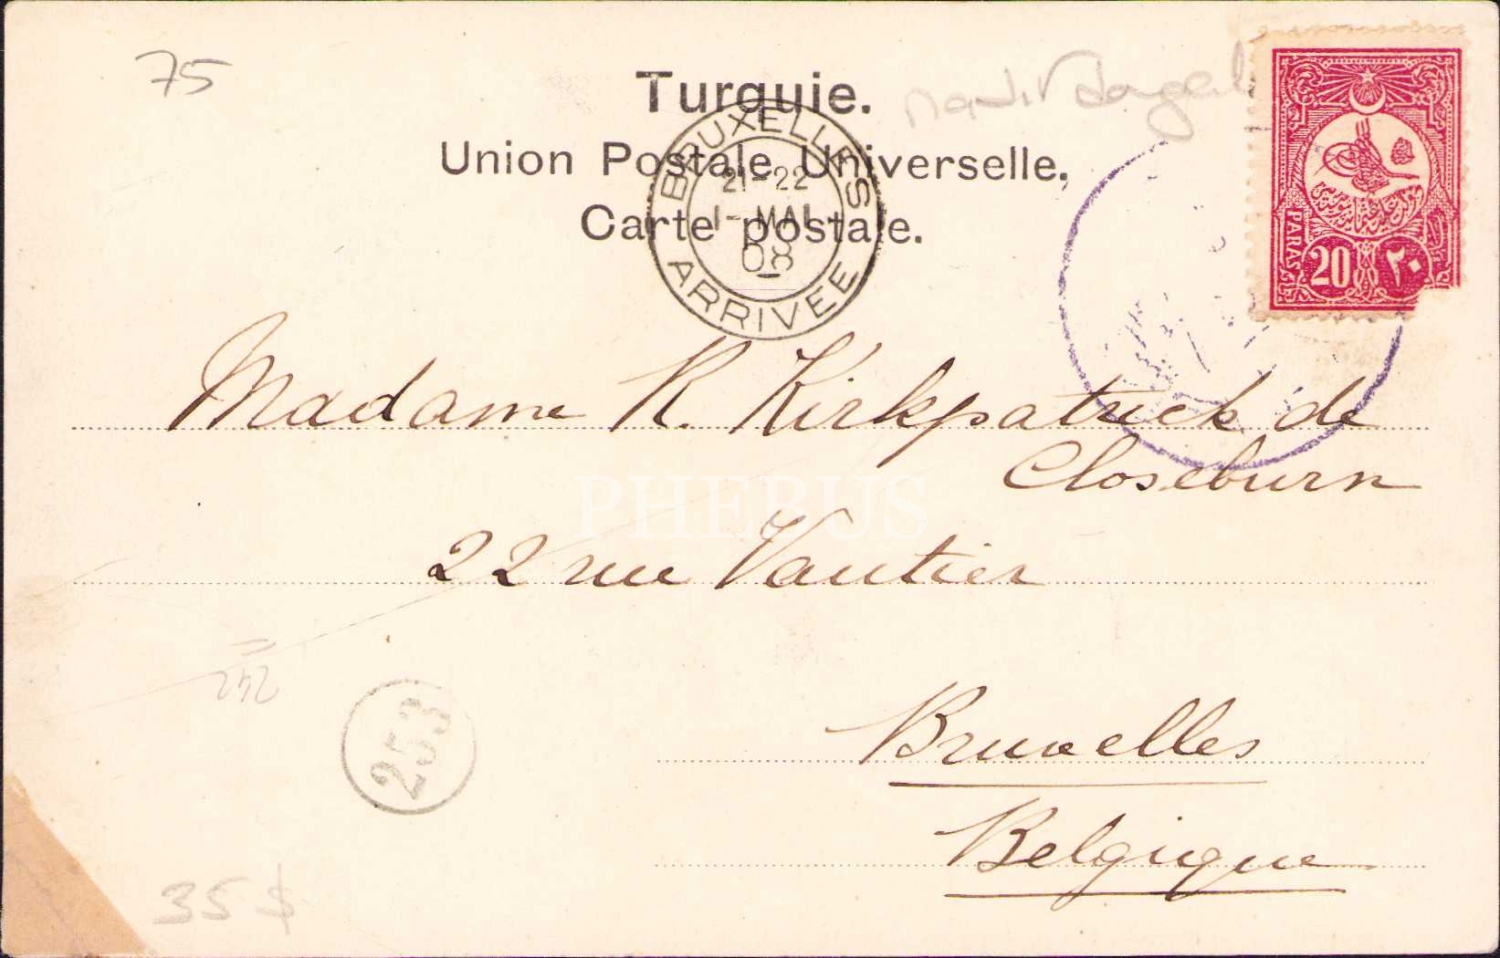 75
Turquie.
Union Postale Universelle.
Carte postale.
BRUXELLES
21-22
1-MAI
08
ARRIVEE
PARAS
20
٢٠
Madame R. Kirkpatrick de
Closeburn
PHEBUS
22 rue Vautier
242
253
Bruxelles
Belgique
35 $